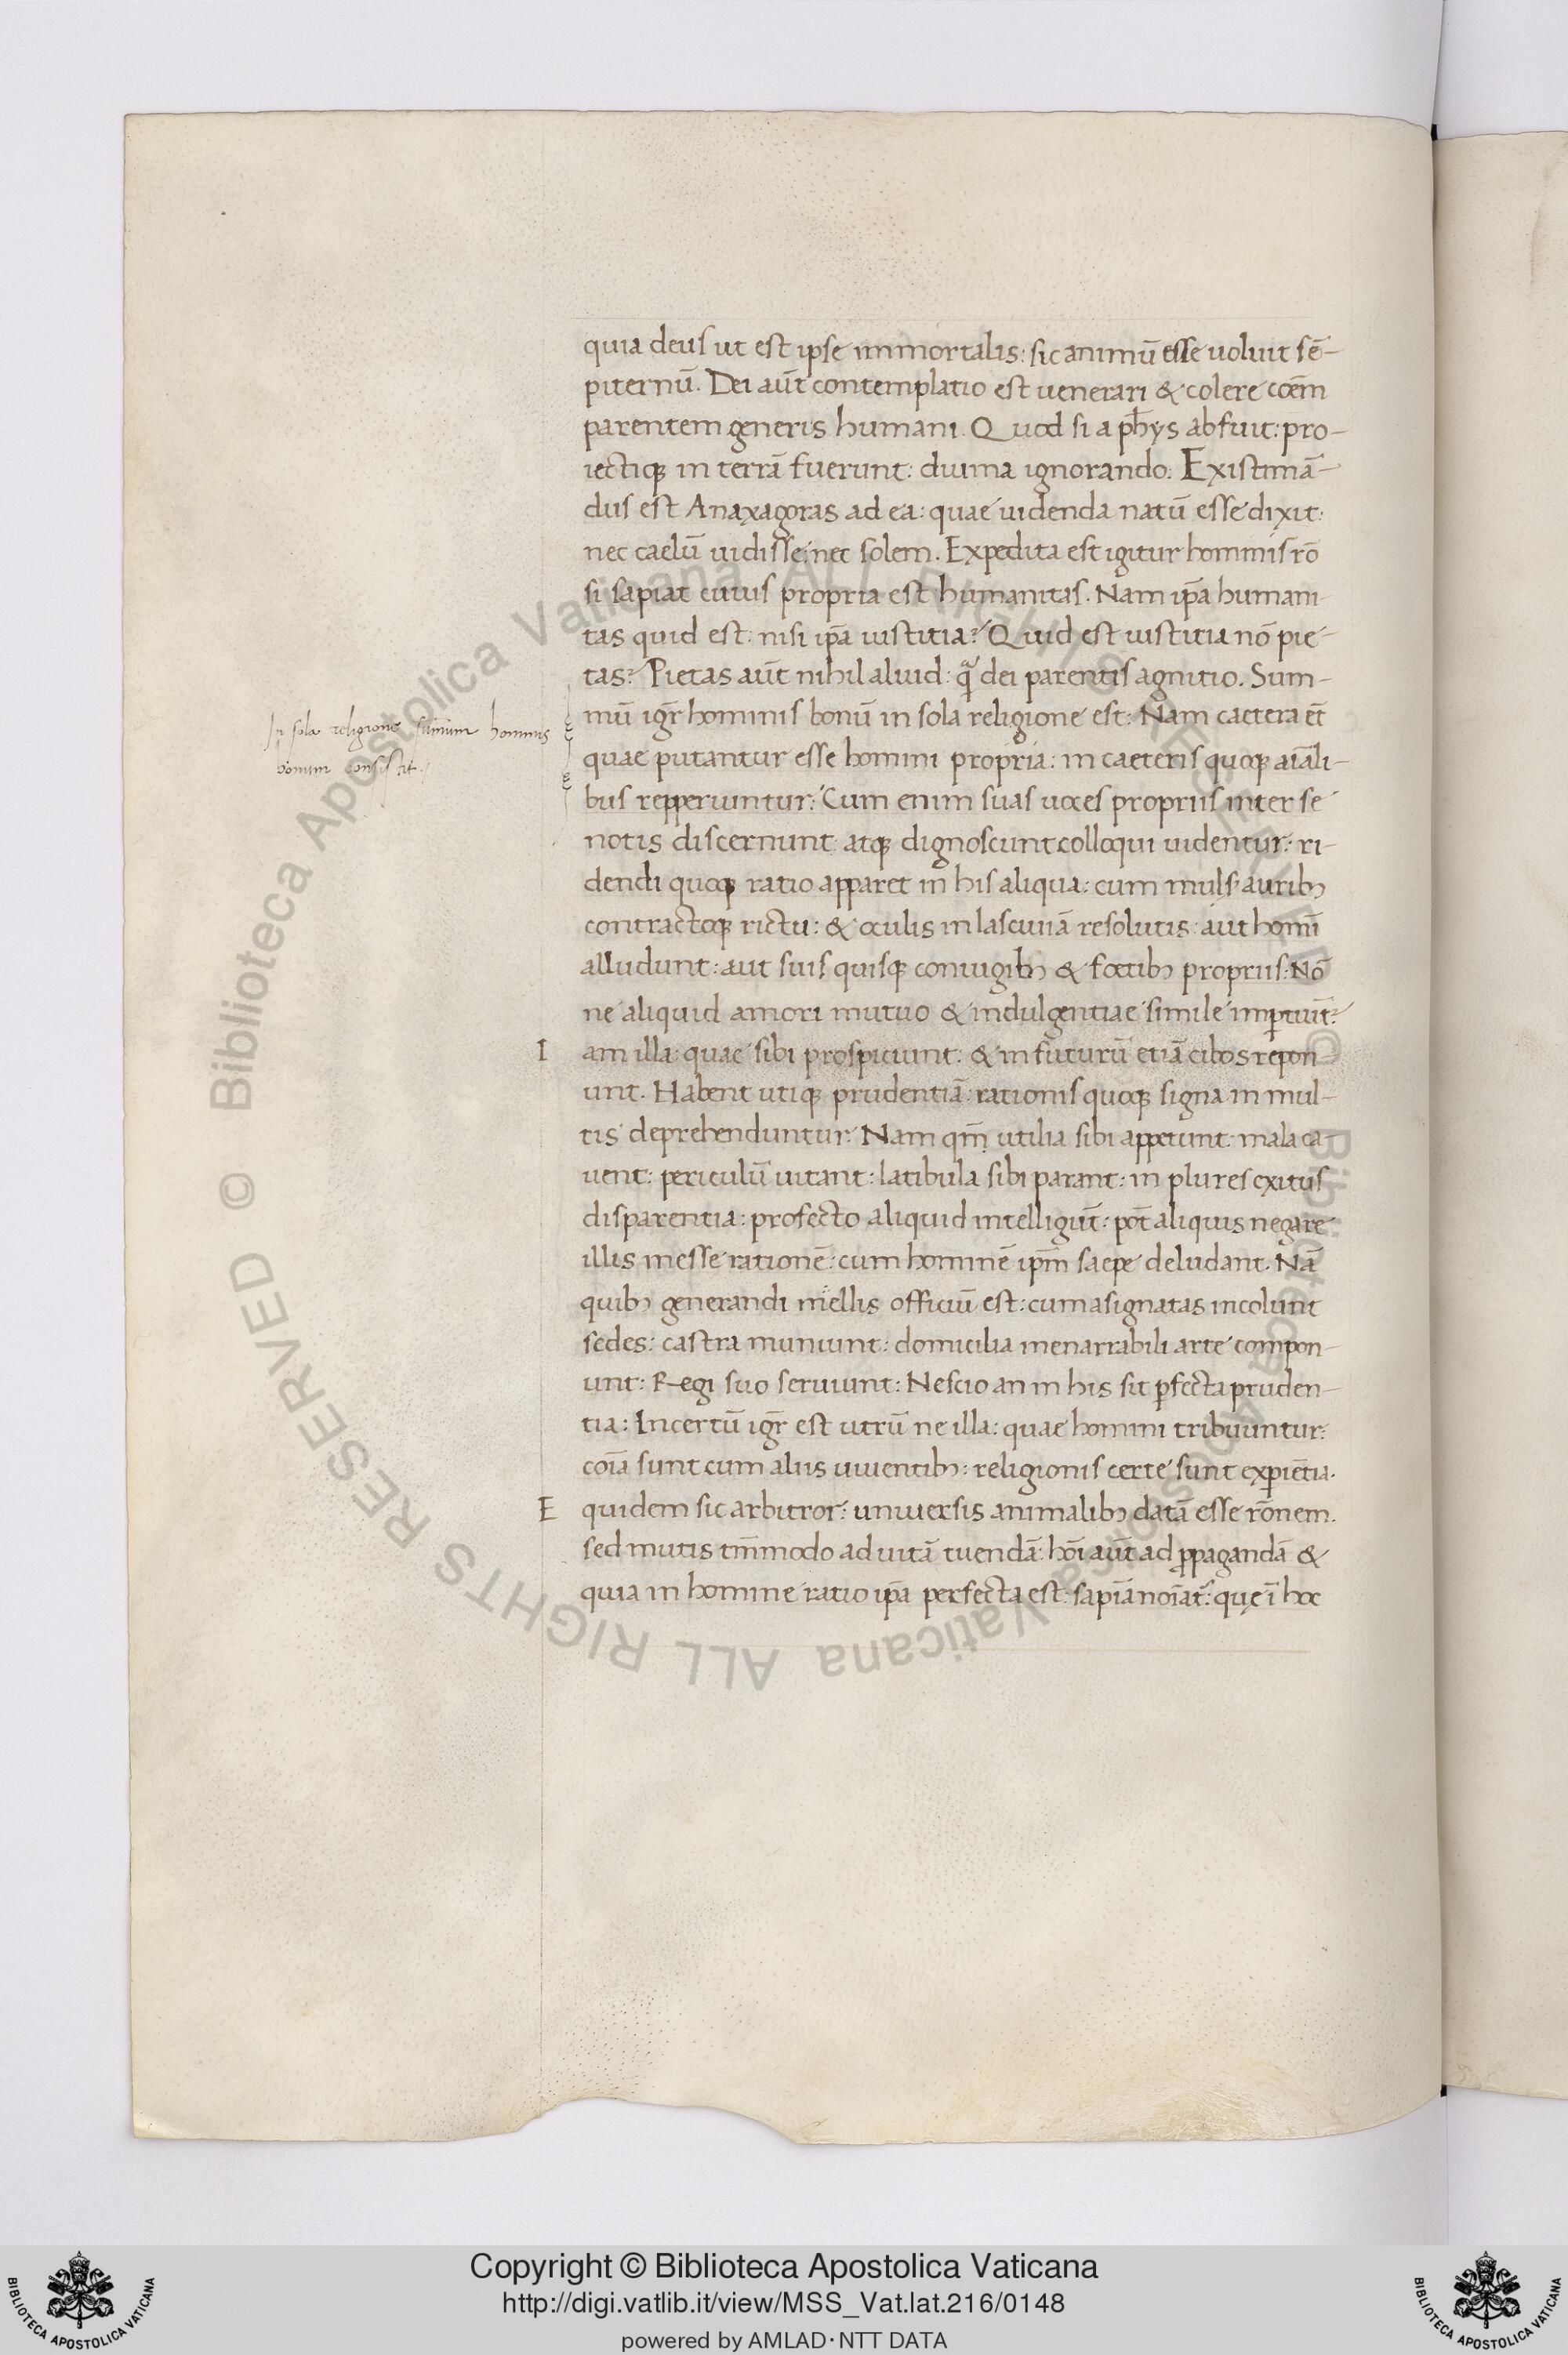 quia deus ut est ipse immortalis: sic animū esse uoluit sē-
piternū. Dei aūt contemplatio est uenerari & colere coēm
parentem generis humani. Quod si a phys abfuit: pro-
iectiqꝫ in terrā fuerunt: diuina ignorando. Existimā-
dus est Anaxagoras ad ea: quae uidenda natū esse dixit:
nec caelū uidisse: nec solem. Expedita est igitur hominis rō
si sapiat cuius propria est humanitas. Nam ip̄a humani-
tas quid est: nisi ip̄a iustitia? Quid est iustitia nō pie-
tas? Pietas aūt nihil aliud: q̄ dei parentis agnitio. Sum-
In sola religione summum hominis
bonum consistit.
mū igr̄ hominis bonū in sola religione est: Nam caetera et̄
quae putantur esse homini propria: in caeteris quoqꝫ aiāli-
bus repperiuntur: Cum enim suas uoces propriis inter se
notis discernunt: atqꝫ dignoscunt colloqui uidentur: ri-
dendi quoqꝫ ratio apparet in his aliqua: cum muls̉ auribꝫ
contractoqꝫ rictu: & oculis in lasciuiā resolutis: aut homī
alludunt: aut suis quisqꝫ coniugibꝫ & foetibꝫ propriis: Nō
ne aliquid amori mutuo & indulgentiae simile imꝑtiūt?
I am illa: quae sibi prospiciunt: & in futurū etiā cibos repon
unt. Habent utiqꝫ prudentiā: rationis quoqꝫ signa in mul-
tis deprehenduntur: Nam qm̄ utilia sibi appetunt: mala ca-
uent: periculū uitant: latibula sibi parant: in plures exitus
disparentia: profecto aliquid intelligūt: pōt aliquis negare
illis inesse rationē: cum hominē ip̄m saepe deludant. Nā
quibꝫ generandi mellis officiū est: cum asignatas incolunt
sedes: castra muniunt: domicilia inenarrabili arte compon-
unt: Regi suo seruiunt: Nescio an in his sit ꝑfecta pruden-
tia: Incertū igr̄ est utrū ne illa: quae homini tribuuntur:
coīa sunt cum aliis uiuentibꝫ: religionis certe sunt expiētia.
E quidem sic arbitror: uniuersis animalibꝫ datā esse rōnem.
sed mutis tm̄modo ad uitā tuendā: hoī aūt ad ꝓpagandā &
quia in homine ratio ip̄a perfecta est: sapīa noīat̉: quę ī hoc
Copyright © Biblioteca Apostolica Vaticana
http://digi.vatlib.it/view/MSS_Vat.lat.216/0148
powered by AMLAD·NTT DATA
BIBLIOTECA APOSTOLICA VATICANA
BIBLIOTECA APOSTOLICA VATICANA
© Biblioteca Apostolica Vaticana ALL RIGHTS RESERVED
© Biblioteca Apostolica Vaticana ALL RIGHTS RESERVED